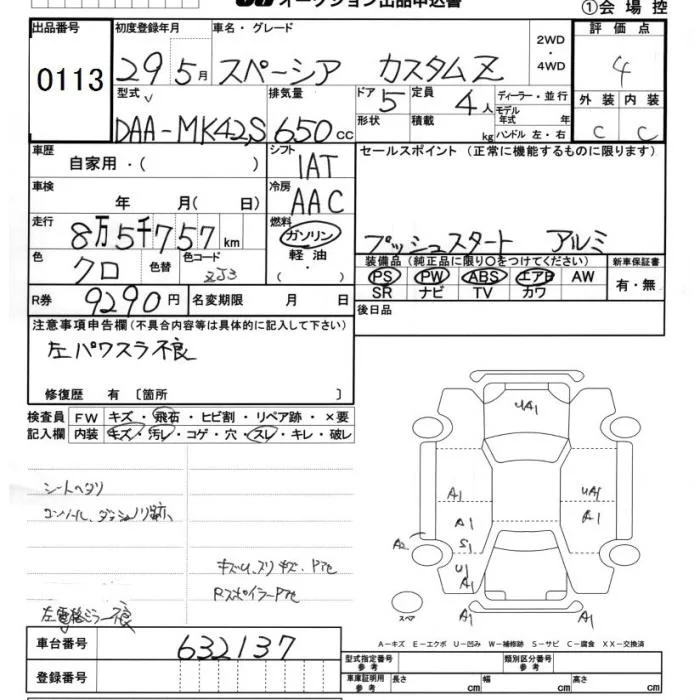 オークション出品申込書
①会場控
出品番号 0113
初度登録年月 29 5月
車名・グレード スペーシア カスタムZ
2WD・4WD
評価点 4
型式 DAA-MK42S
排気量 650cc
ドア 5 形状
定員 4人 積載 kg
ディーラー・並行
モデル年式 年
ハンドル 左・右
外装 C 内装 C
車歴 自家用・( )
シフト IAT
セールスポイント (正常に機能するものに限ります)
車検 年 月( 日)
冷房 AAC
走行 8万5千757km
燃料 ガソリン 軽油・( )
プッシュスタート アルミ
色 クロ 色替 色コード ZJ3
装備品 (純正品に限り○をつけてください) 新車保証書
PS PW ABS エアB AW 有・無
SR ナビ TV カワ
R券 9290円 名変期限 月 日
後日品
注意事項申告欄 (不具合内容等は具体的に記入して下さい)
左パワスラ不良
修復歴 有 〔箇所 〕
検査員 FW キズ・飛石・ヒビ割・リペア跡・×要
記入欄 内装 キズ・汚レ・コゲ・穴・スレ・キレ・破レ
シートヘタリ
コンソール、ダッシュノリ跡、
キズU、スリキズ、Pアセ
RスポイラーPアセ
左電格ミラー不良
UA1
A1 UA1
A1 A1
A2 S1
U1
A1
スペア A1 A1
A-キズ E-エクボ U-凹み W-補修跡 S-サビ C-腐食 XX-交換済
車台番号 632137
登録番号
型式指定番号 参考 類別区分番号 参考
車庫証明用 参考 長さ cm 幅 cm 高さ cm